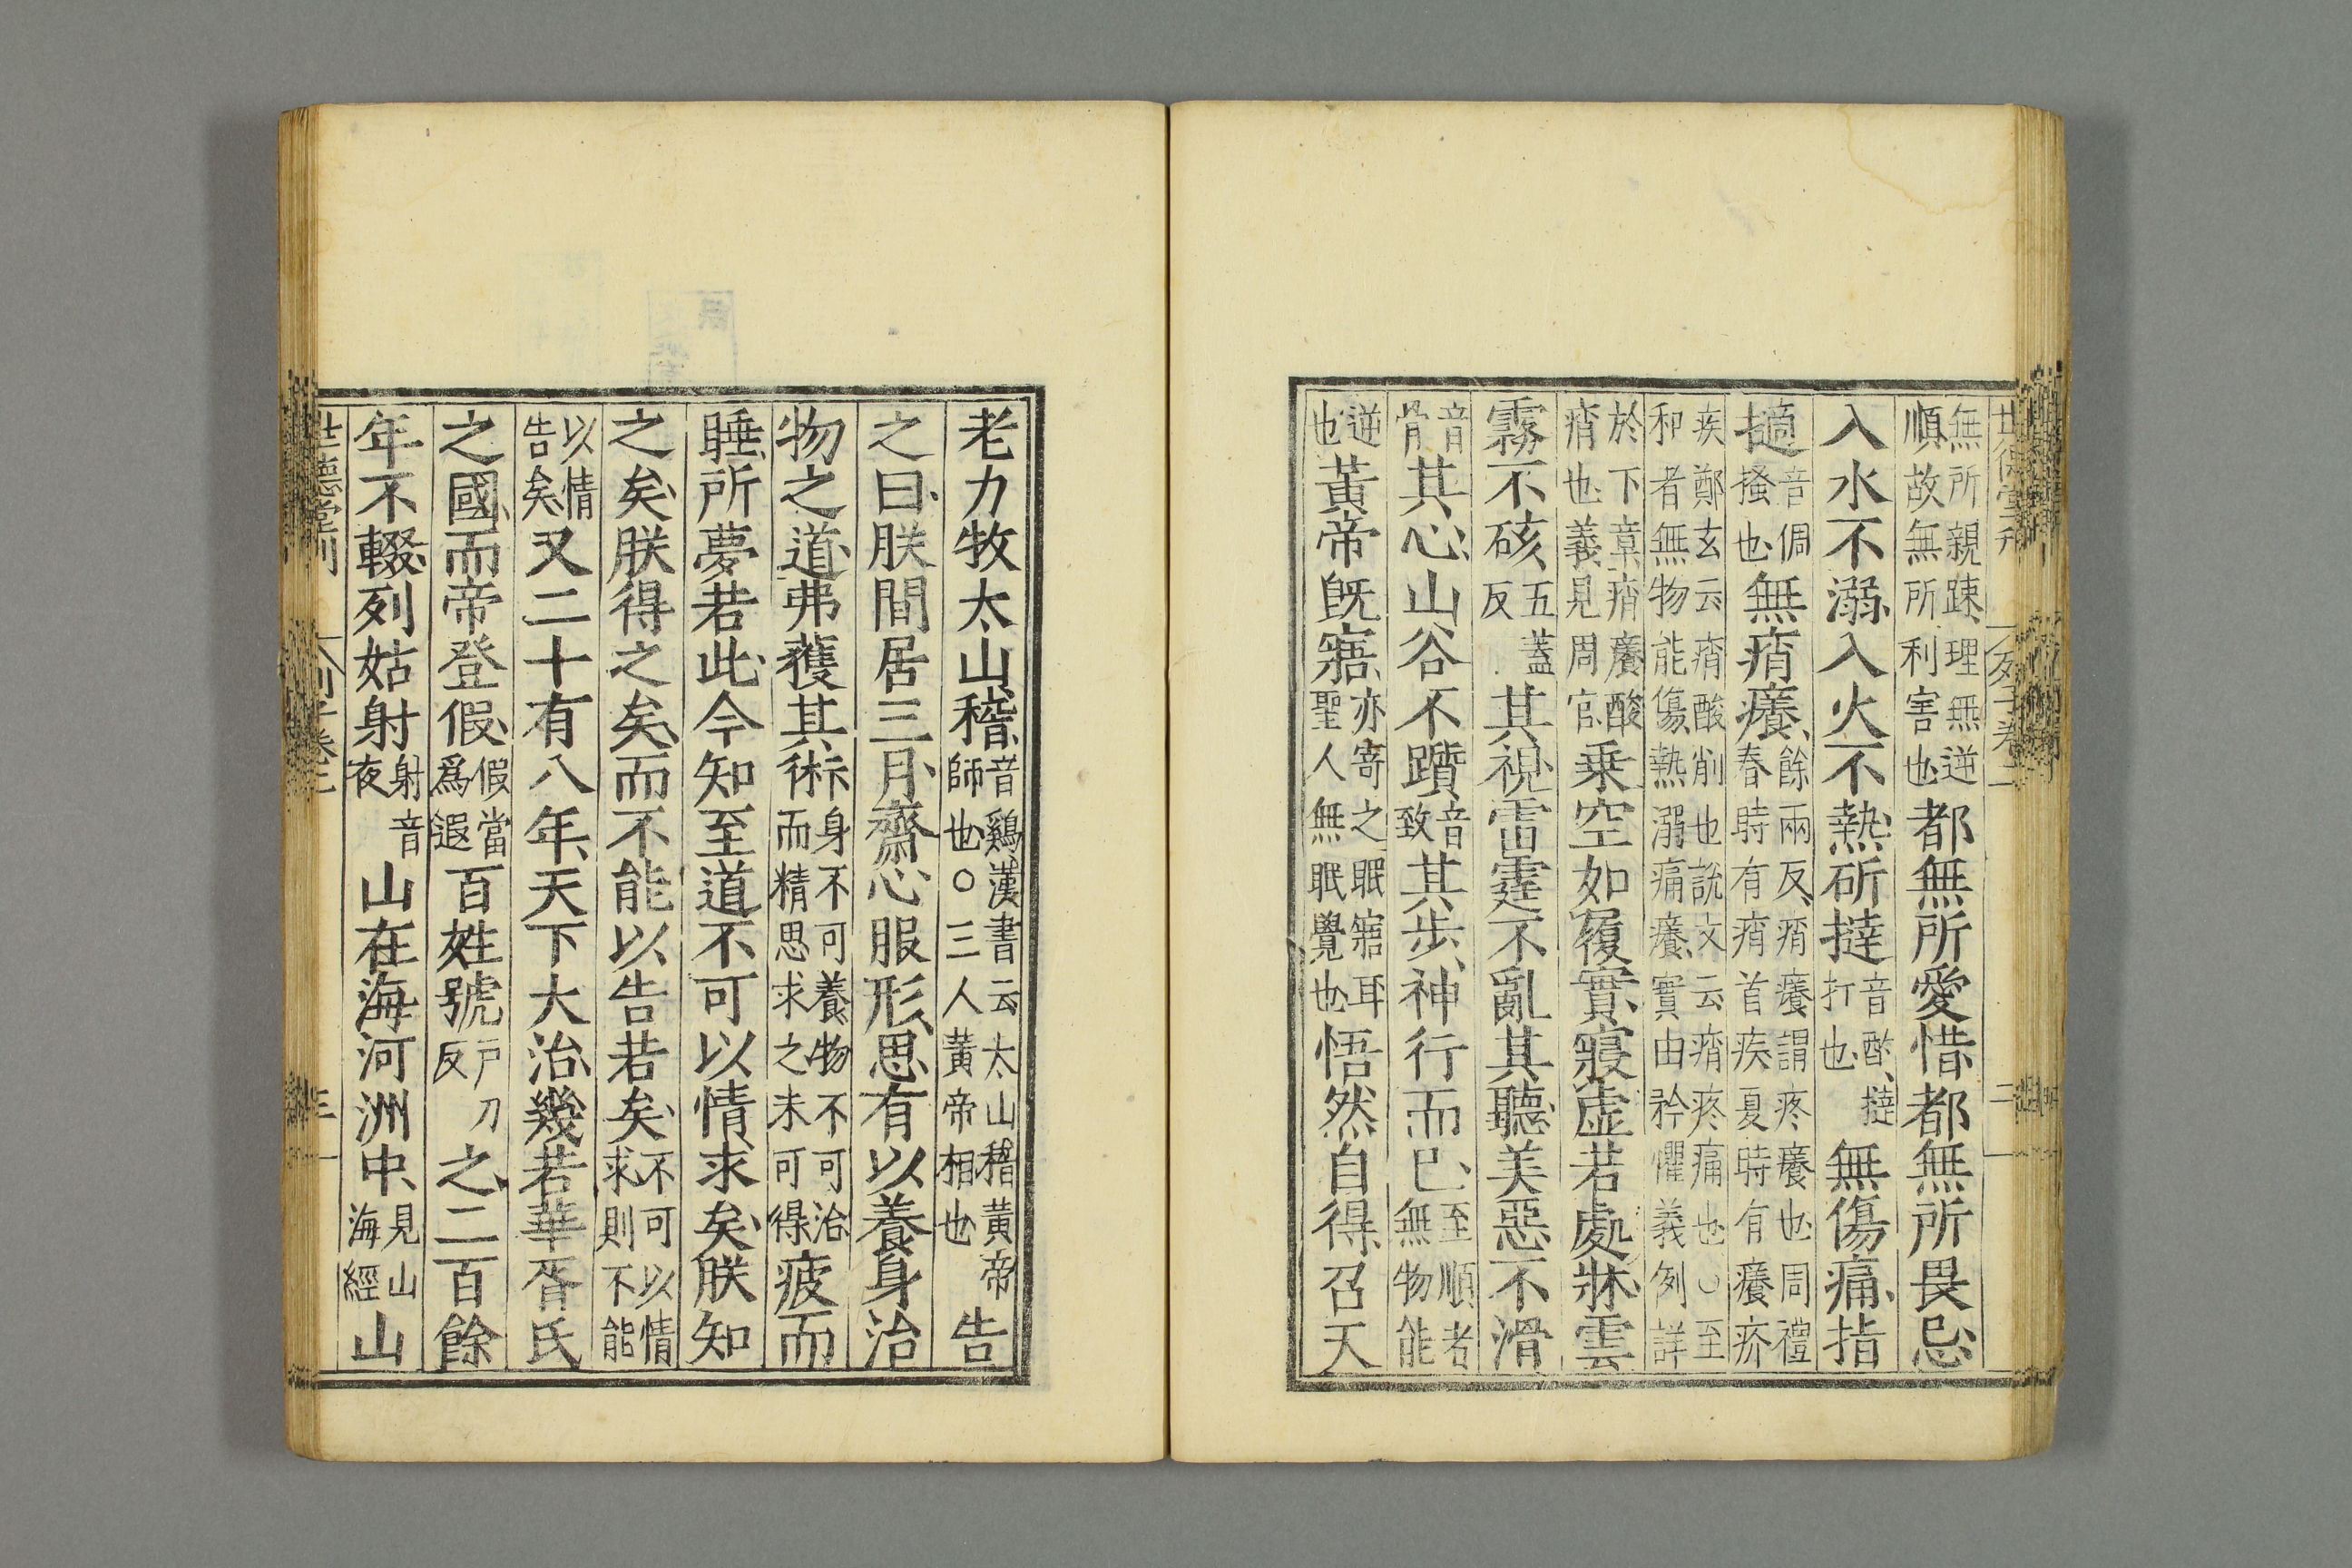 世德堂刊 列子卷二 二
無所親踈、理無逆順故無所利害也都無所愛惜都無所畏忌、
入水不溺、入火不熱、斫撻音酌、撻打也無傷痛、指
擿音倜搔也、無痟癢、餘兩反、痟癢謂疼癢也周禮春時有痟首疾夏時有癢疥
疾鄭玄云痟酸削也說文云痟疼痛也○至和者無物能傷、熱溺痛癢、實由矜懼義例詳
於下章、痟癢酸痟也、義見周官、乗空如履實、寢虛若處牀、雲
霧不硋、五蓋反其視、雷霆不亂其聽、美惡不滑
音骨其心、山谷不躓音致其步、神行而已、至順者無物能
逆也黃帝旣寤、亦寄之眠寤耳聖人無眠覺也、悟然自得、召天
老力牧太山稽、音鷄漢書云太山稽黃帝師也○三人黃帝相也告
之曰、朕閒居三月、齋心服形、思有以養身治
物之道、弗獲其術、身不可養、物不可治而精思求之未可得疲而
睡、所夢若此、今知至道不可以情求矣、朕知
之矣、朕得之矣、而不能以告若矣、不可以情求則不能
以情告矣、又二十有八年、天下大治、幾若華胥氏
之國、而帝登假、假當爲遐百姓號戶刀反之、二百餘
年不輟、列姑射射音夜山在海河洲中、見山海經山
世德堂刊 列子卷二 三